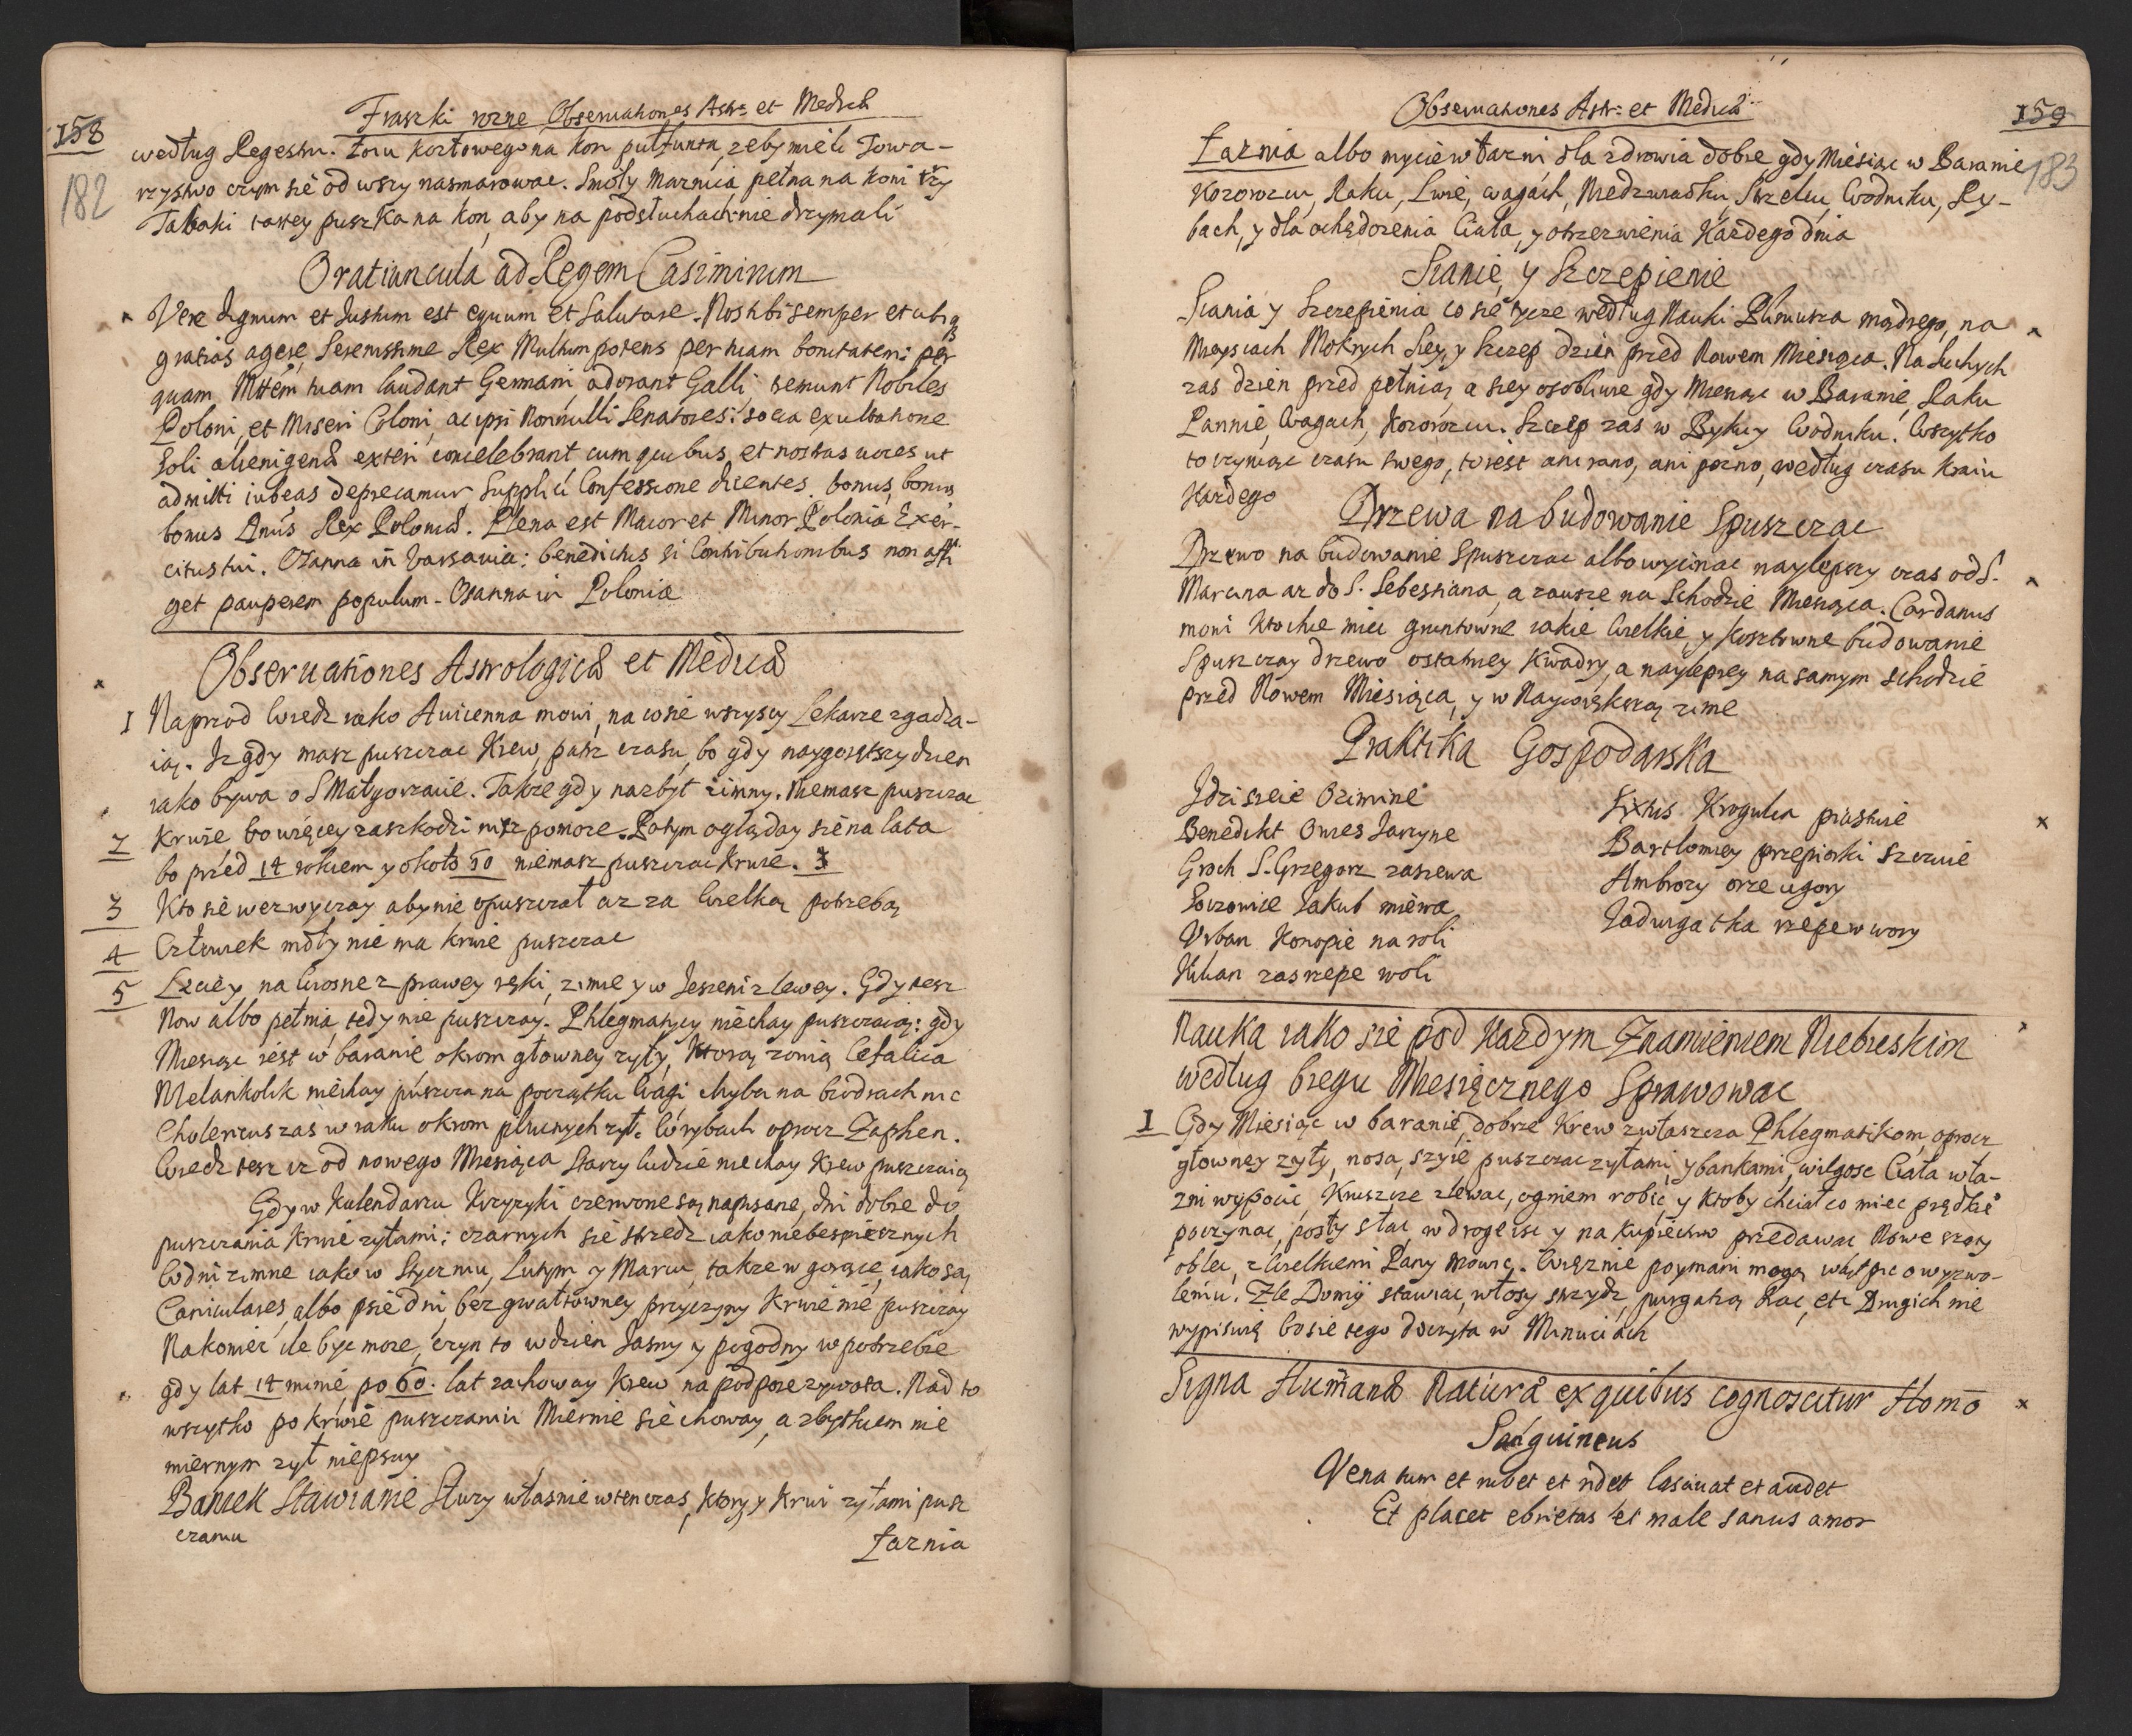 158
182
Fraszki rozne Obseruationes Astr: et Medicæ
według Regestru. Łoiu kozłowego na kon pułfunta, zeby mieli Towa-
rzystwo czym się od wszy nasmarowac. Smoły Maznica pełna na koni trzy
Tabaki tartey puszka na kon, aby na podsłuchach nie drzymali
Oratiuncula ad Regem Casimirum
Vere dignum et Justum est equum et Salutare. Nos tibi semper et ubiq
gratias agere, Serenissime Rex Multum potens per tuam bonitatem: per
quam Mttem tuam laudant Germani, adorant Galli, tremunt Nobiles
Poloni, et Miseri Coloni, ac ipsi Nonnulli Senatores: socia exultatione
Soli alienigenæ exteri concelebrant cum quibus et nostras uoces ut
admitti iubeas deprecamur Supplici Confessione dicentes. bonus, bonus
bonus Dnus Rex Poloniæ. Plena est Maior et Minor Polonia Exer-
citus tui. Ozanna in Varsavia: benedictus si Contributionibus non affli
get pauperem populum. Osanna in Polonia
Obseruationes Astrologicæ et Medicæ
1 Naprzod Wiedz iako Auicenna mowi, na co sie wszyscy Lekarze zgadza-
ią. Iz gdy masz puszczac Krew, patrz czasu, bo gdy naygorętszy dzien
iako bywa o S Małgorzacie. Takze gdy nazbyt zimny. Niemasz puszczac
2 Krwie bo więcey zaszkodzi niz pomoze. Potym ogląday sie na lata
bo przed 14 rokiem y około 50 niemasz puszczac Krwie. 3
3 Kto sie wezwyczay aby nie opuszczał az za Wielką potrzebą
4 Człowiek mdły nie ma krwie puszczac
5 Lecie y na Wiosne z prawey ręki, zimie y w Jesieni z lewey. Gdy tesz
Now albo pełnia, tedy nie puszczay. Phlegmatycy niechay puszczaią: gdy
Miesiąc iest w baranie okrom głowney zyły, ktorą zonią Cefalica
Melankolik niechay puszcza na początku Wagi chyba na biodrach nic
Cholericus zas w raku okrom płucnych zył. W rybach oprocz Zaphen.
Wiedz tesz iz od nowego Miesiąca Starzy ludzie niechay Krew puszczaią
Gdy w Kalendarzu Krzyzyki czerwone są napisane, dni dobre do
puszczania Krwie zyłami: czarnych sie strzedz iako niebespiecznych
W dni zimne iako w Styczniu, Lutym y Marcu, takze w gorące, iako są
Caniculares, albo psie dni, bez gwałtowney przyczyny Krwie nie puszczay
Nakoniec ile byc moze, czyn to w dzien Jasny y pogodny w potrzebie
gdy lat 14 minie, po 60. lat zachoway Krew na podporę zywota. Nad to
wszytko po Krwie puszczaniu Miernie sie choway, a zbytkiem nie
miernym zył niepsuy
Baniek Stawianie Słuzy własnie wten czas, ktory y Krwi zyłami pusz
czaniu
Łaznia
Obseruationes Astr: et Medicæ
159
183
Łaznia albo mycie w łazni dla zdrowia dobre gdy Miesiac w Baranie
Kozorozcu, Raku, Lwie, Wagach, Niedzwiadku, Strzelcu, Wodniku, Ry-
bach, y dla ochędozenia Ciała, y otrzezwienia Kazdego dnia
Sianie y Szczepienie
Siania y Szczepienia co sie tycze według Nauki Pliniusza mądrego, na
Mieyscach Mokrych Siey, y Szczep dzien przed Nowem Miesiąca. Na Suchych
zas dzien przed pełnią, a siey osobliwie gdy Miesiąc w Baranie, Raku
Pannie, Wagach, Kozorozcu. Szczep zas w Byku y Wodniku. Wszytko
to czyniąc czasu swego, to iest ani rano, ani pozno, według czasu kraiu
Kazdego
Drzewa na budowanie Spuszczac
Drzewo na budowanie Spuszczac albo wycinac naylepszy czas od S.
Marcina az do S. Sebestiana, a zawsze na Schodzie Miesiąca. Cardanus
mowi Kto chce miec gruntowne iakie Wielkie y Kosztowne budowanie
Spuszczay drzewo ostatniey Kwadry, a naylepiey na samym schodzie
przed Nowem Miesiąca, y w Naywiększą zime
Praktika Gospodarska
Idzi sieie Ozimine
Benedikt Owies Jarzyne
Groch S. Grzegorz zasiewa
Soczowice Jakub miewa
Vrban Konopie na roli
Kilian zas rzepe woli
Sixtus Krogulca piastuie
Bartłomiey przepiorki szczuie
Ambrozy orze ugory
Jadwigatka rzepe w wory
Nauka iako sie pod Kazdym Znamieniem Niebieskim
według biegu Miesięcznego Sprawowac
1 Gdy Miesiąc w baranie, dobrze Krew zwłaszcza Phlegmatikom, oprocz
głowney zyły, nosa, szyie puszczac zyłami, y bankami, wilgosc Ciała w ła-
zni wypocic, Kruszcze zlewac, ogniem robic, y ktoby chciał co miec prędkie
poczynac, posły słac, w drogę isc y na kupiectwo przedawac Nowe szaty
oblec, z Wielkiemi Pany mowic. Więznie poymani mogą wątpic o wyzwo-
leniu. Zle Domy stawiac, włosy strzydz, purgatią brac, etc Drugich nie
wypisuię bo sie tego doczyta w Minuciach
Signa Humanæ Naturæ ex quibus cognoscitur Homo
Sanguineus
Venatur et rubet et ridet lasciuat et audet
Et placet ebrietas et male sanus amor